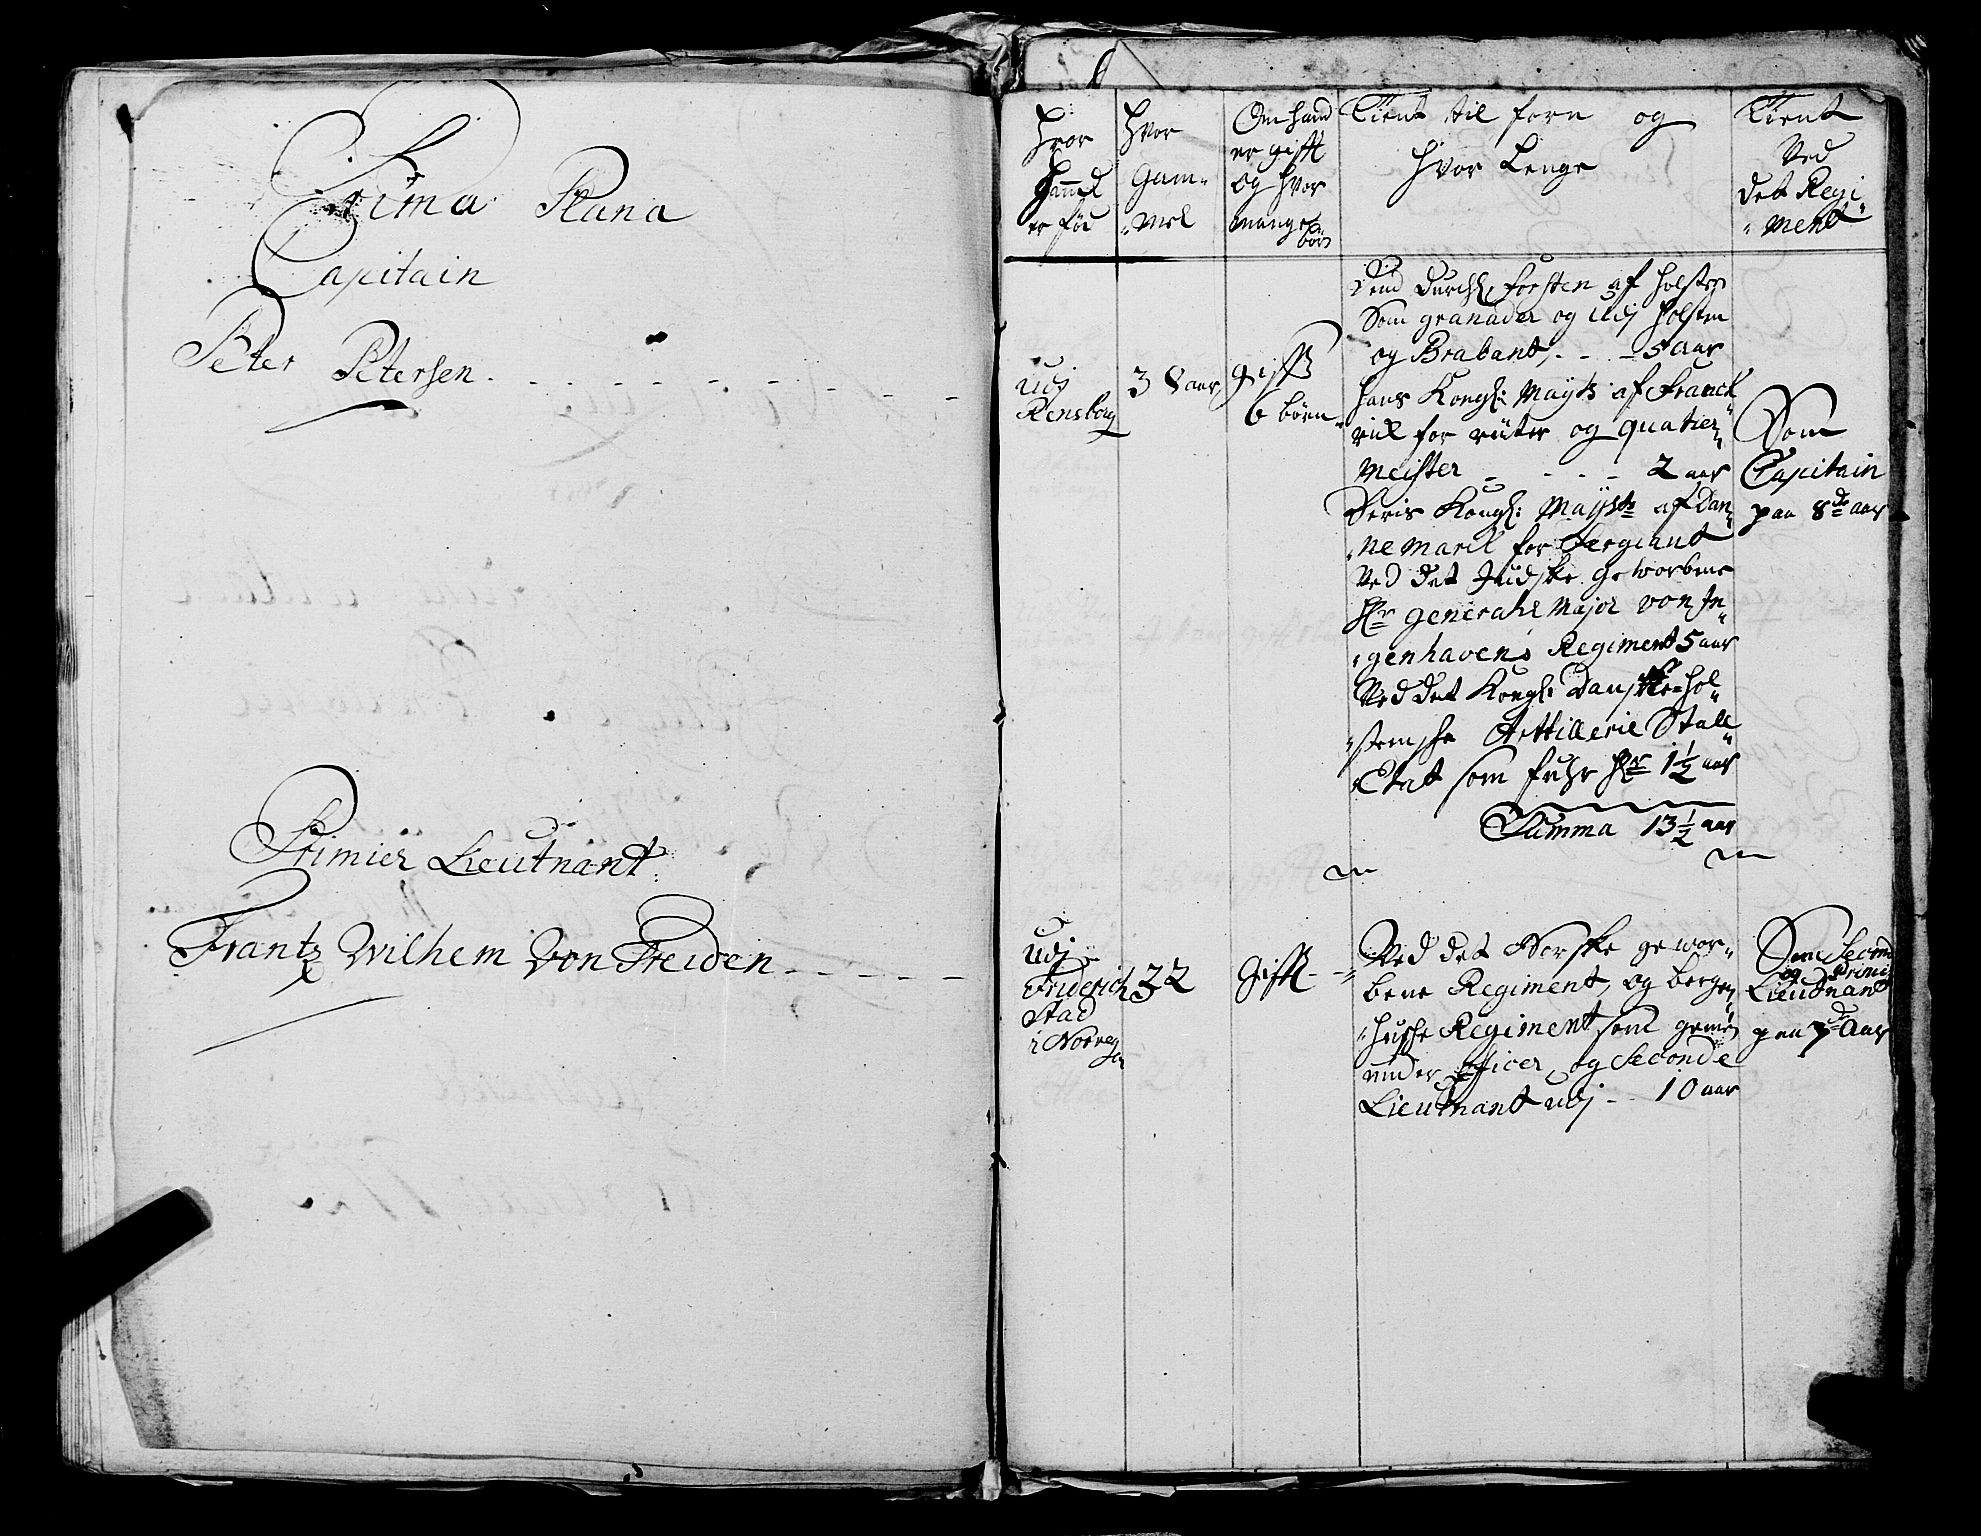 Prima Plana
Capitain
Peter Petersen
Primier Lieutnant
Frantz Wilhem Von Treiden
Hvor
Hand
er fød
Hvor
Gam-
mel
Om hand
er gifft
og hvor
mange
børn
Tient til forn og
Hvor Lenge
Tient
Ved
det Regi
ment
udj
Rensborg
38 aar
gifft
6 børn
Dend Durchl. forsten af Holsten
Som granader og udj Holsten
og Brabant - - - 5 aar
Hans Kongl: Mayts af Franck
rich for rüter og quatier
Meister - - - - 2 aar
Deris Kongl: Mayts af Dan
nemarck for Sergiant
Ved det Judske geworbene
Hr generahl Major von In
genhavens Regiment 5 aar
Ved det Kongl: Danske Hol
stenske Artillerie Stall
Etat som fuhr Hr 1½ aar
Summa 13½ aar
Som
Capitain
paa 8de aar
udj
Friderich
Stad
i Norge
32
gifft
Ved det Norske gewor
bene Regiment, og bergen
husske Regiment som gemen
under officer, og Seconde
Lieutnant udj - - 10 aar
Som Second
og Primi
Lieutnant
paa 7de Aar